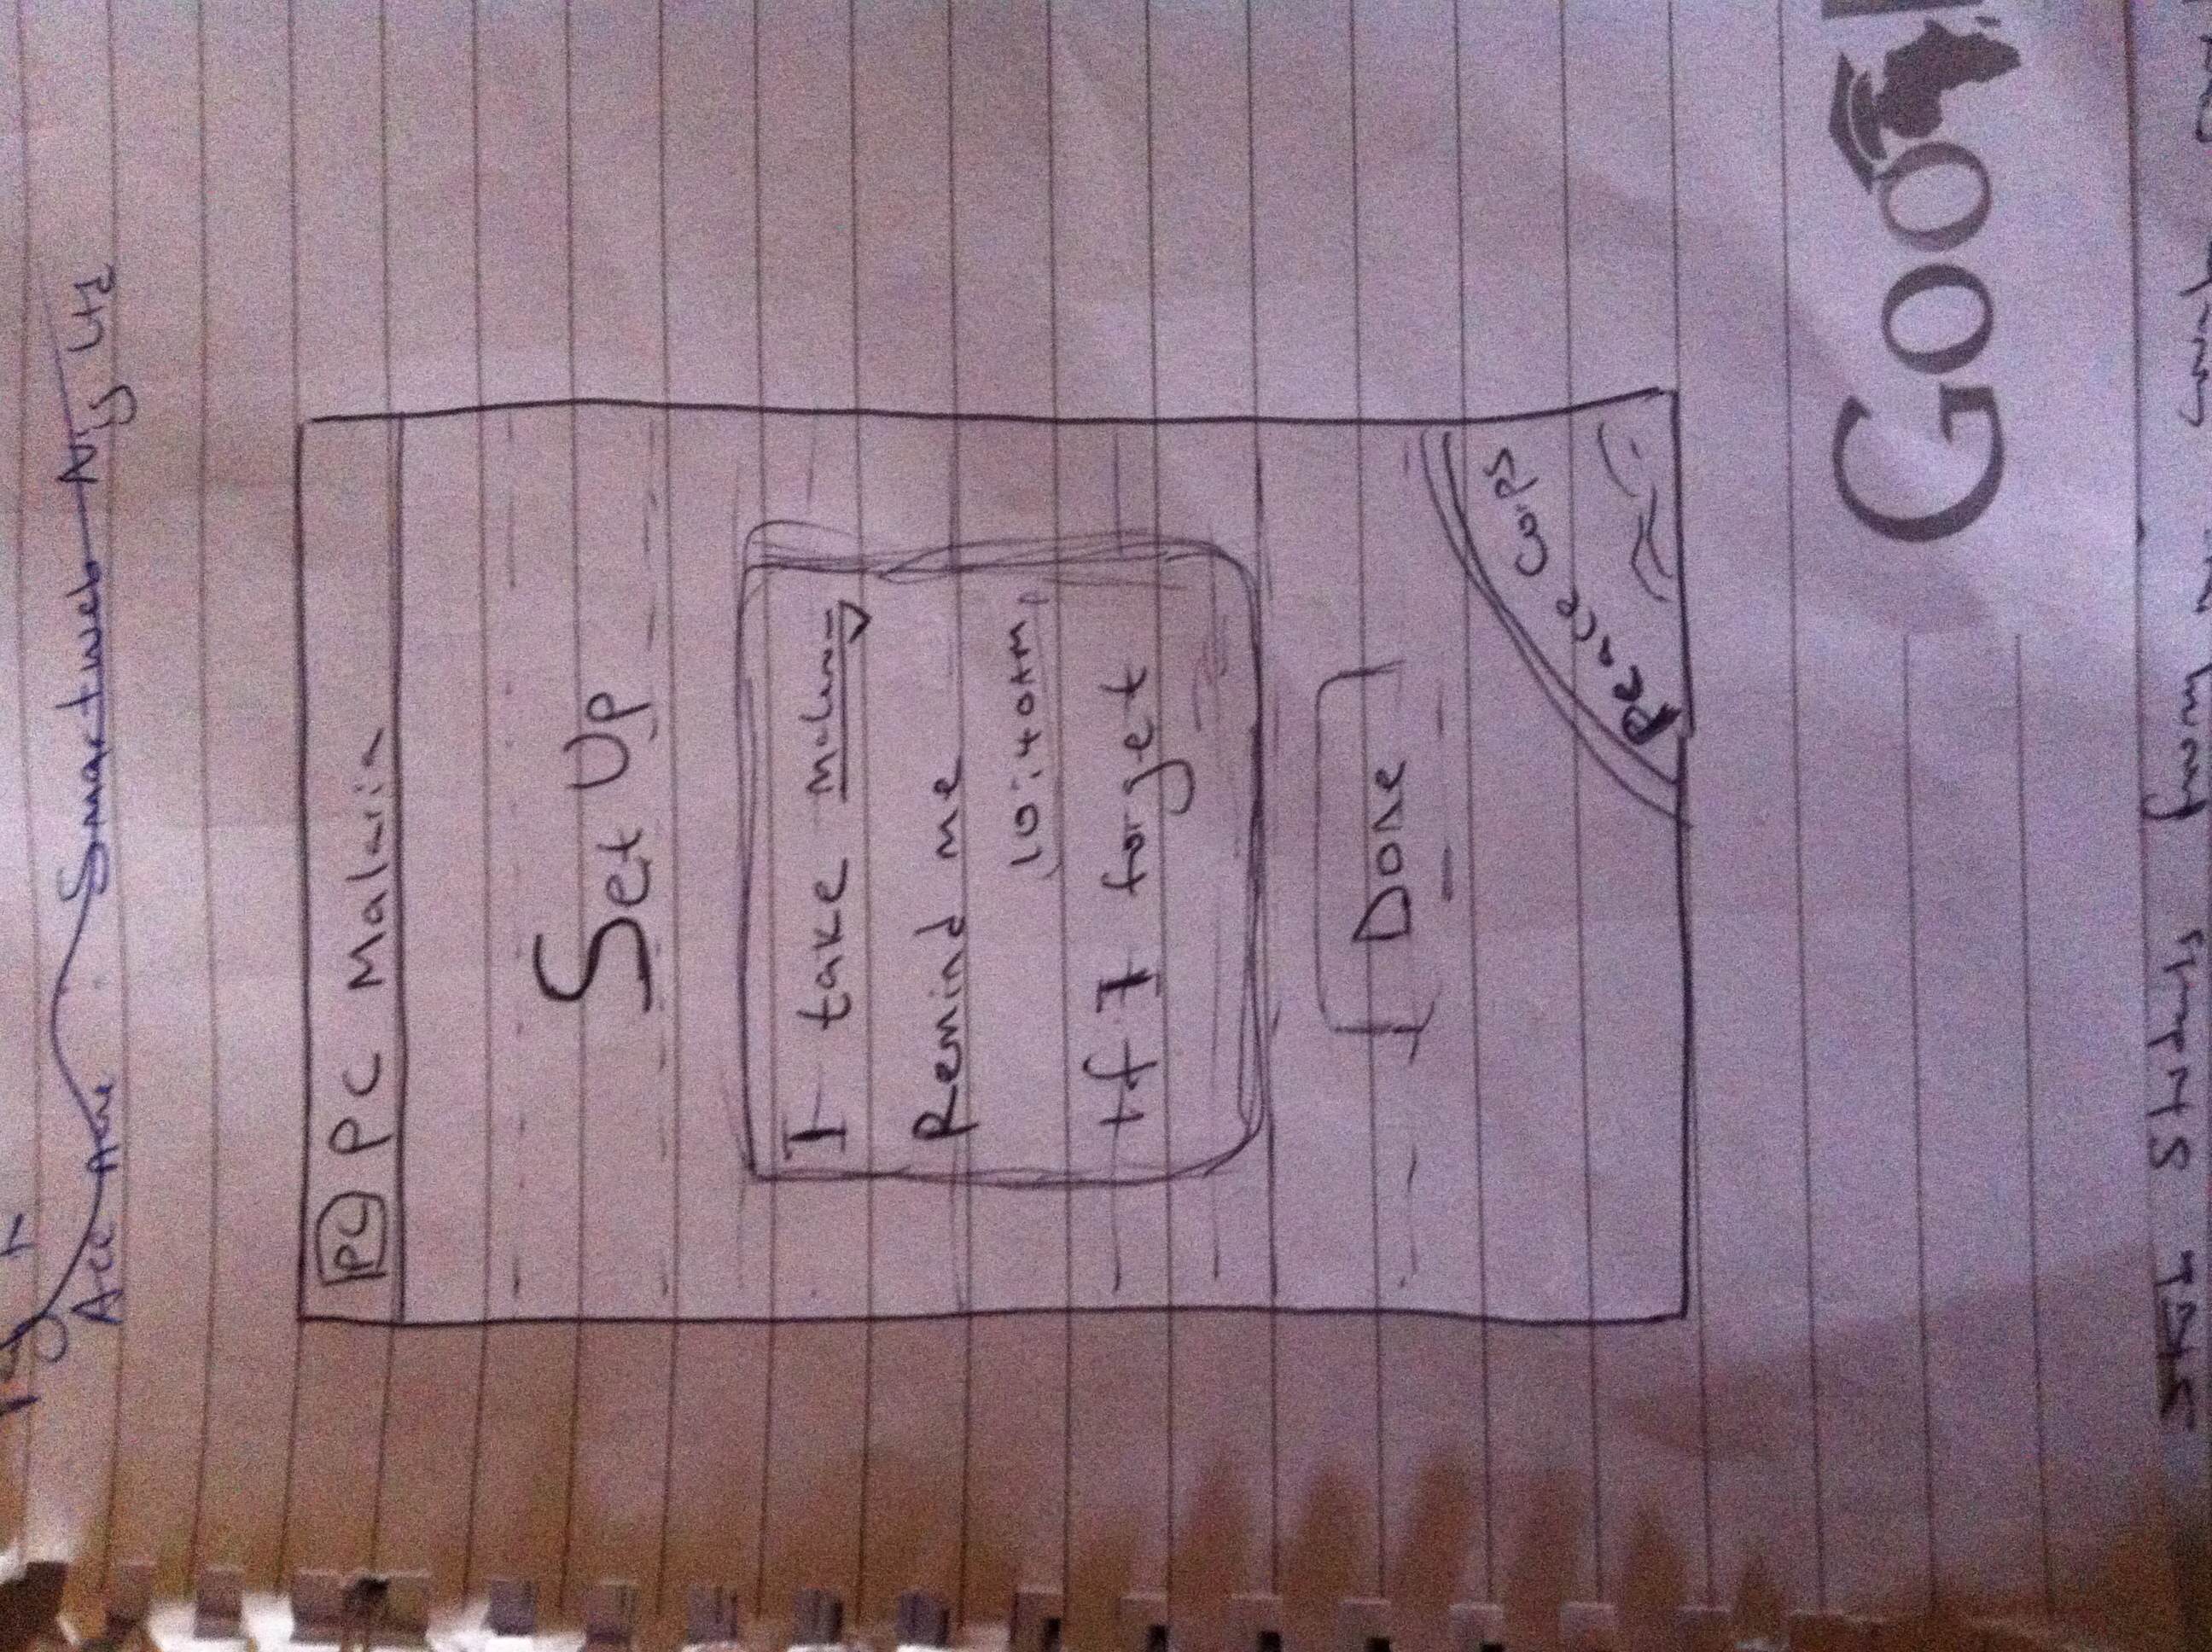 Smartweb Nig Ltd
PC PC Malaria
Set Up
I take
Remind me
10:40AM
If I forget
Done
Peace Corps
Goo
Students from